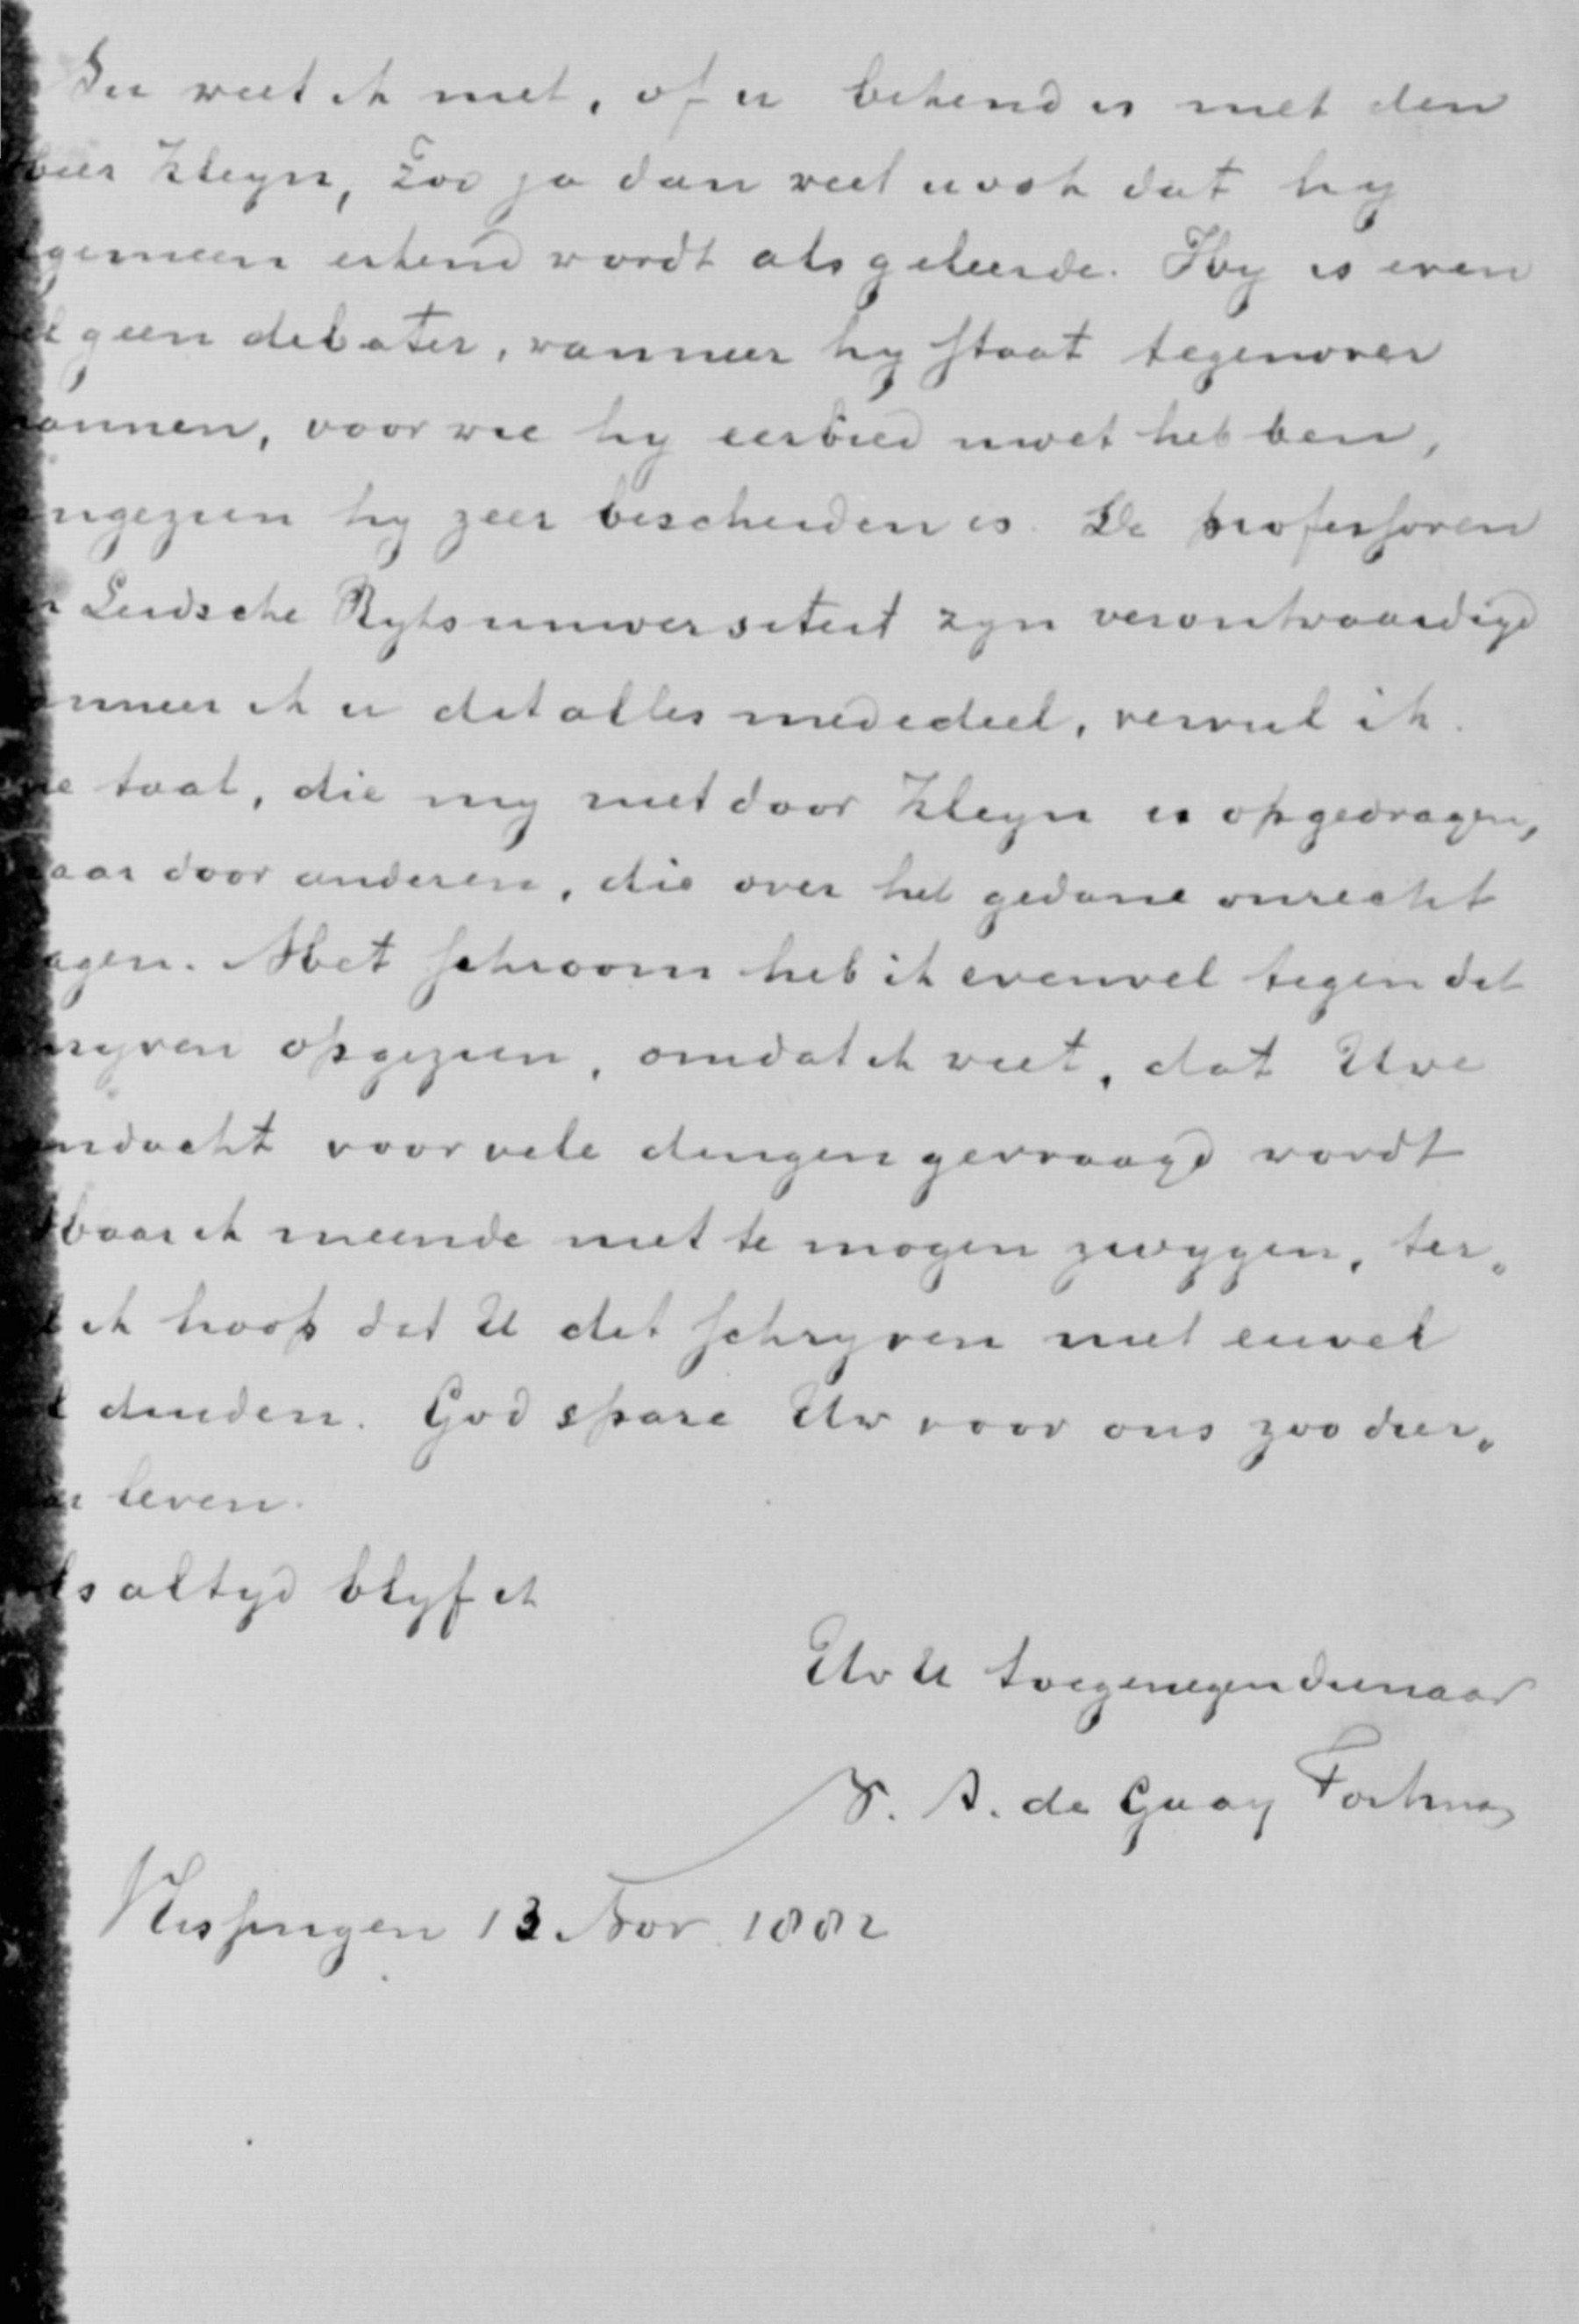 Nu weet ik niet, of u bekend is met den
heer Kleyn, Zoo ja dan weet u ook dat hy
lgemeen erkend wordt als geleerde. Hy is even
el geen debater, wanneer hy staat tegenover
annen, voor wie hy eerbied moet hebben,
ngezien hy zeer bescheiden is. De professoren
r Leidsche Ryksuniversiteit zyn verontwaardigd
nneer ik u dit alles mededeel, vervul ik
ne taal, die my niet door Kleyn is opgedragen,
aar door anderen, die over het gedane onrecht
agen. Met schroom heb ik evenwel tegen dit
ryven opgezien, omdat ik weet, dat Uwe
ndacht voor vele dingen gevraagd wordt
baar ik meende niet te mogen zwygen, ter„
l ik hoop dat U dit schryven niet euvel
l duiden. God spare Uw voor ons zoo dier„
ar leven.
ls altyd blyf ik
Uw U toegenegen dienaar
N. A. de Gaay Fortman
Vlissingen 13 Nov. 1882